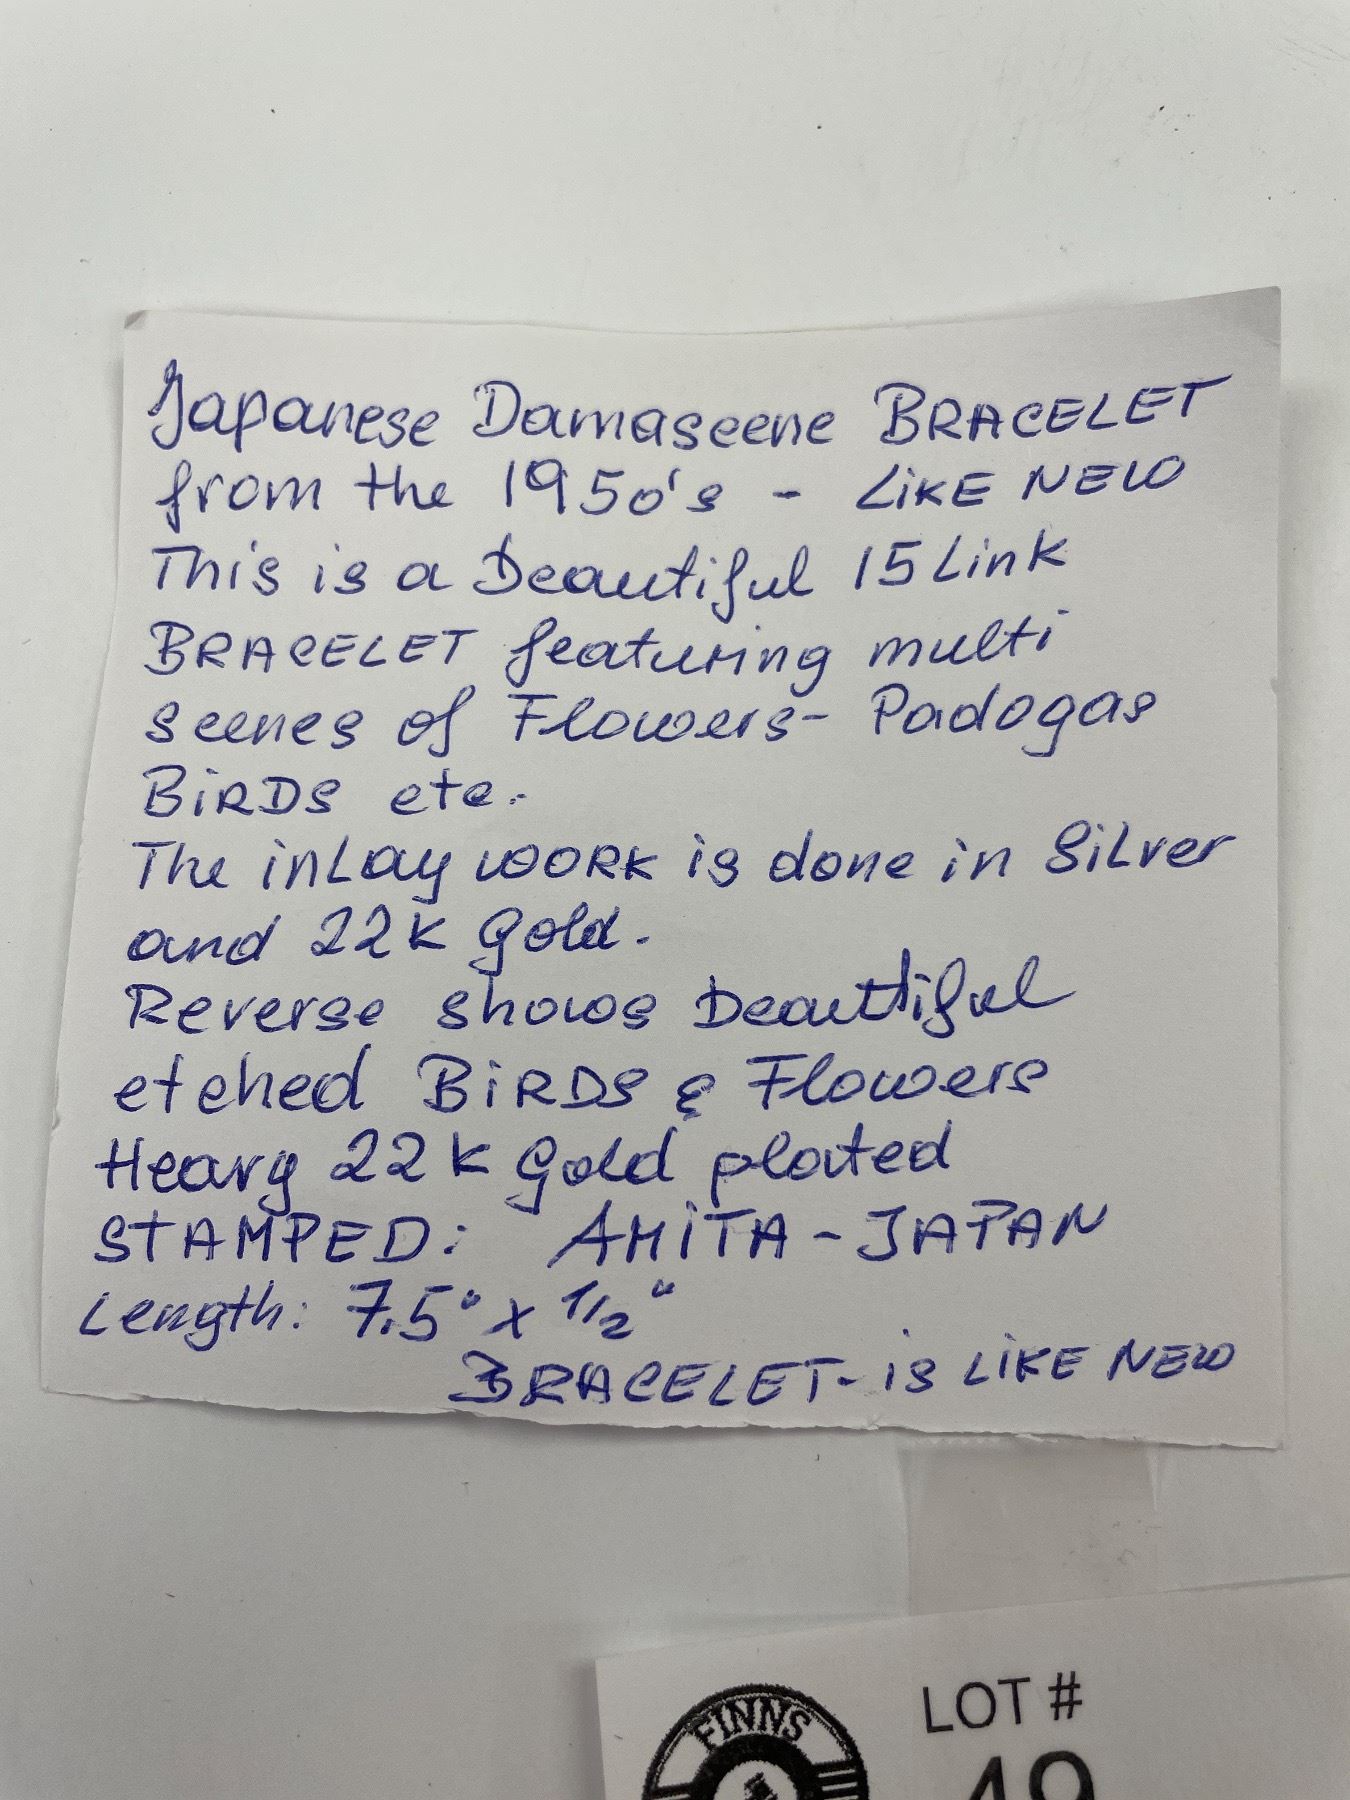 Japanese Damascene BRACELET
from the 1950's - LIKE NEW
This is a Beautiful 15 Link
BRACELET featuring multi
scenes of Flowers- Padogas
BIRDS etc.
The inlay WORK is done in Silver
and 22K Gold.
Reverse shows Beauttiful
etched BIRDS & Flowers
Heavy 22K Gold plated
STAMPED: AMITA - JAPAN
Length: 7.5" x 1/2"
BRACELET- is LIKE NEW
FINNS
LOT #